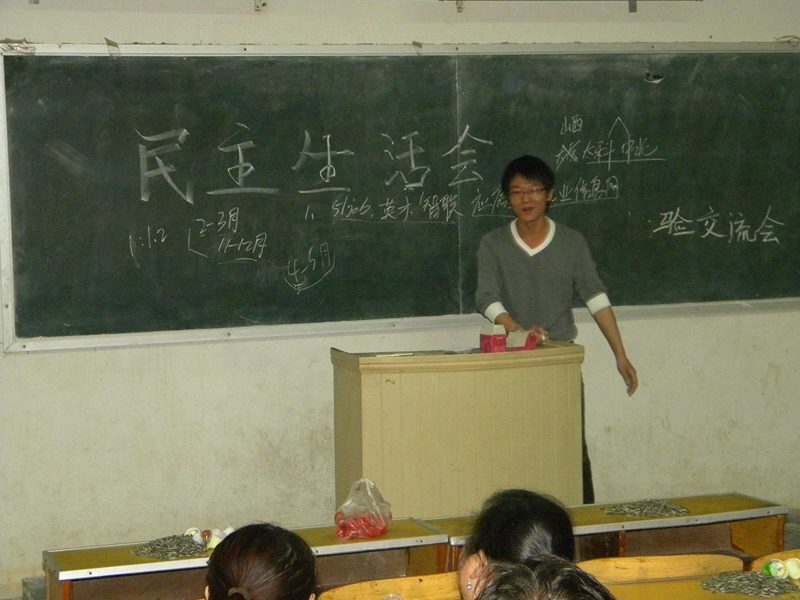 民主生活会
山西
太科 中北
1. 51job、英才、智联 应届
业信息网
验交流会
1:1.2
2-3月
11-12月
4-5月